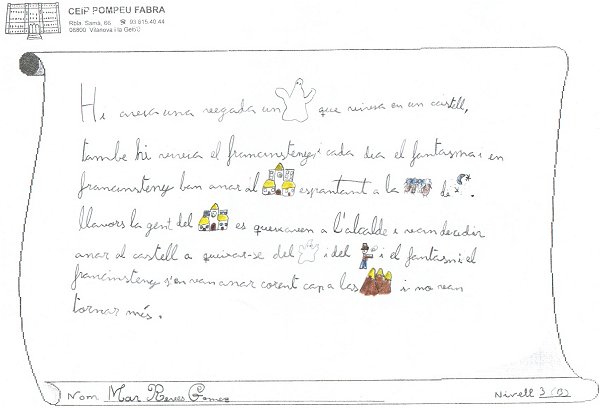 CEIP POMPEU FABRA
Rbla. Samà, 66 ☎ 93.815.40.44
08800 Vilanova i la Geltrú
Hi aveia una vegada un que vivia en un castell,
també hi vivia el francinsteny i cada dia el fantasma i en
francinsteny ban anar al espantant a la de
llavors la gent del es queixaven a l'alcalde i van decidir
anar al castell a queixar-se del i del i el fantasm i el
francinsteny s'en van anar corent cap a las i no van
tornar més.
Nom Mar Reves Gomez Nivell 3 (B)